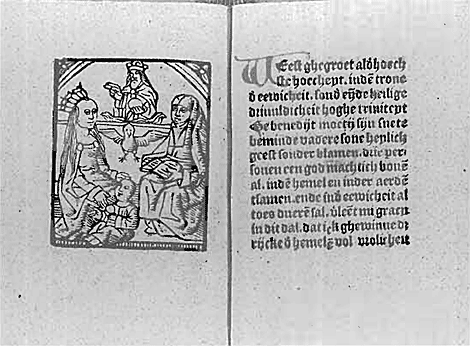 Weest ghegroet
inde trone
eewicheit. sond eyde heilige
drivuldicheit hoghe triniteyt
Ghebenedijt moetty sijn suete
beminde vadere sone heylich
geest sonder blamen. drie per-
sonen een god machtich bouē
al. indē hemel en inder aerdē
tsamen. ende ind eewicheit al
toes duerē sal. Uleēt mi gracy
in dit dal. dat ick ghewinne d
rijcke d hemelē vol vrolicheit